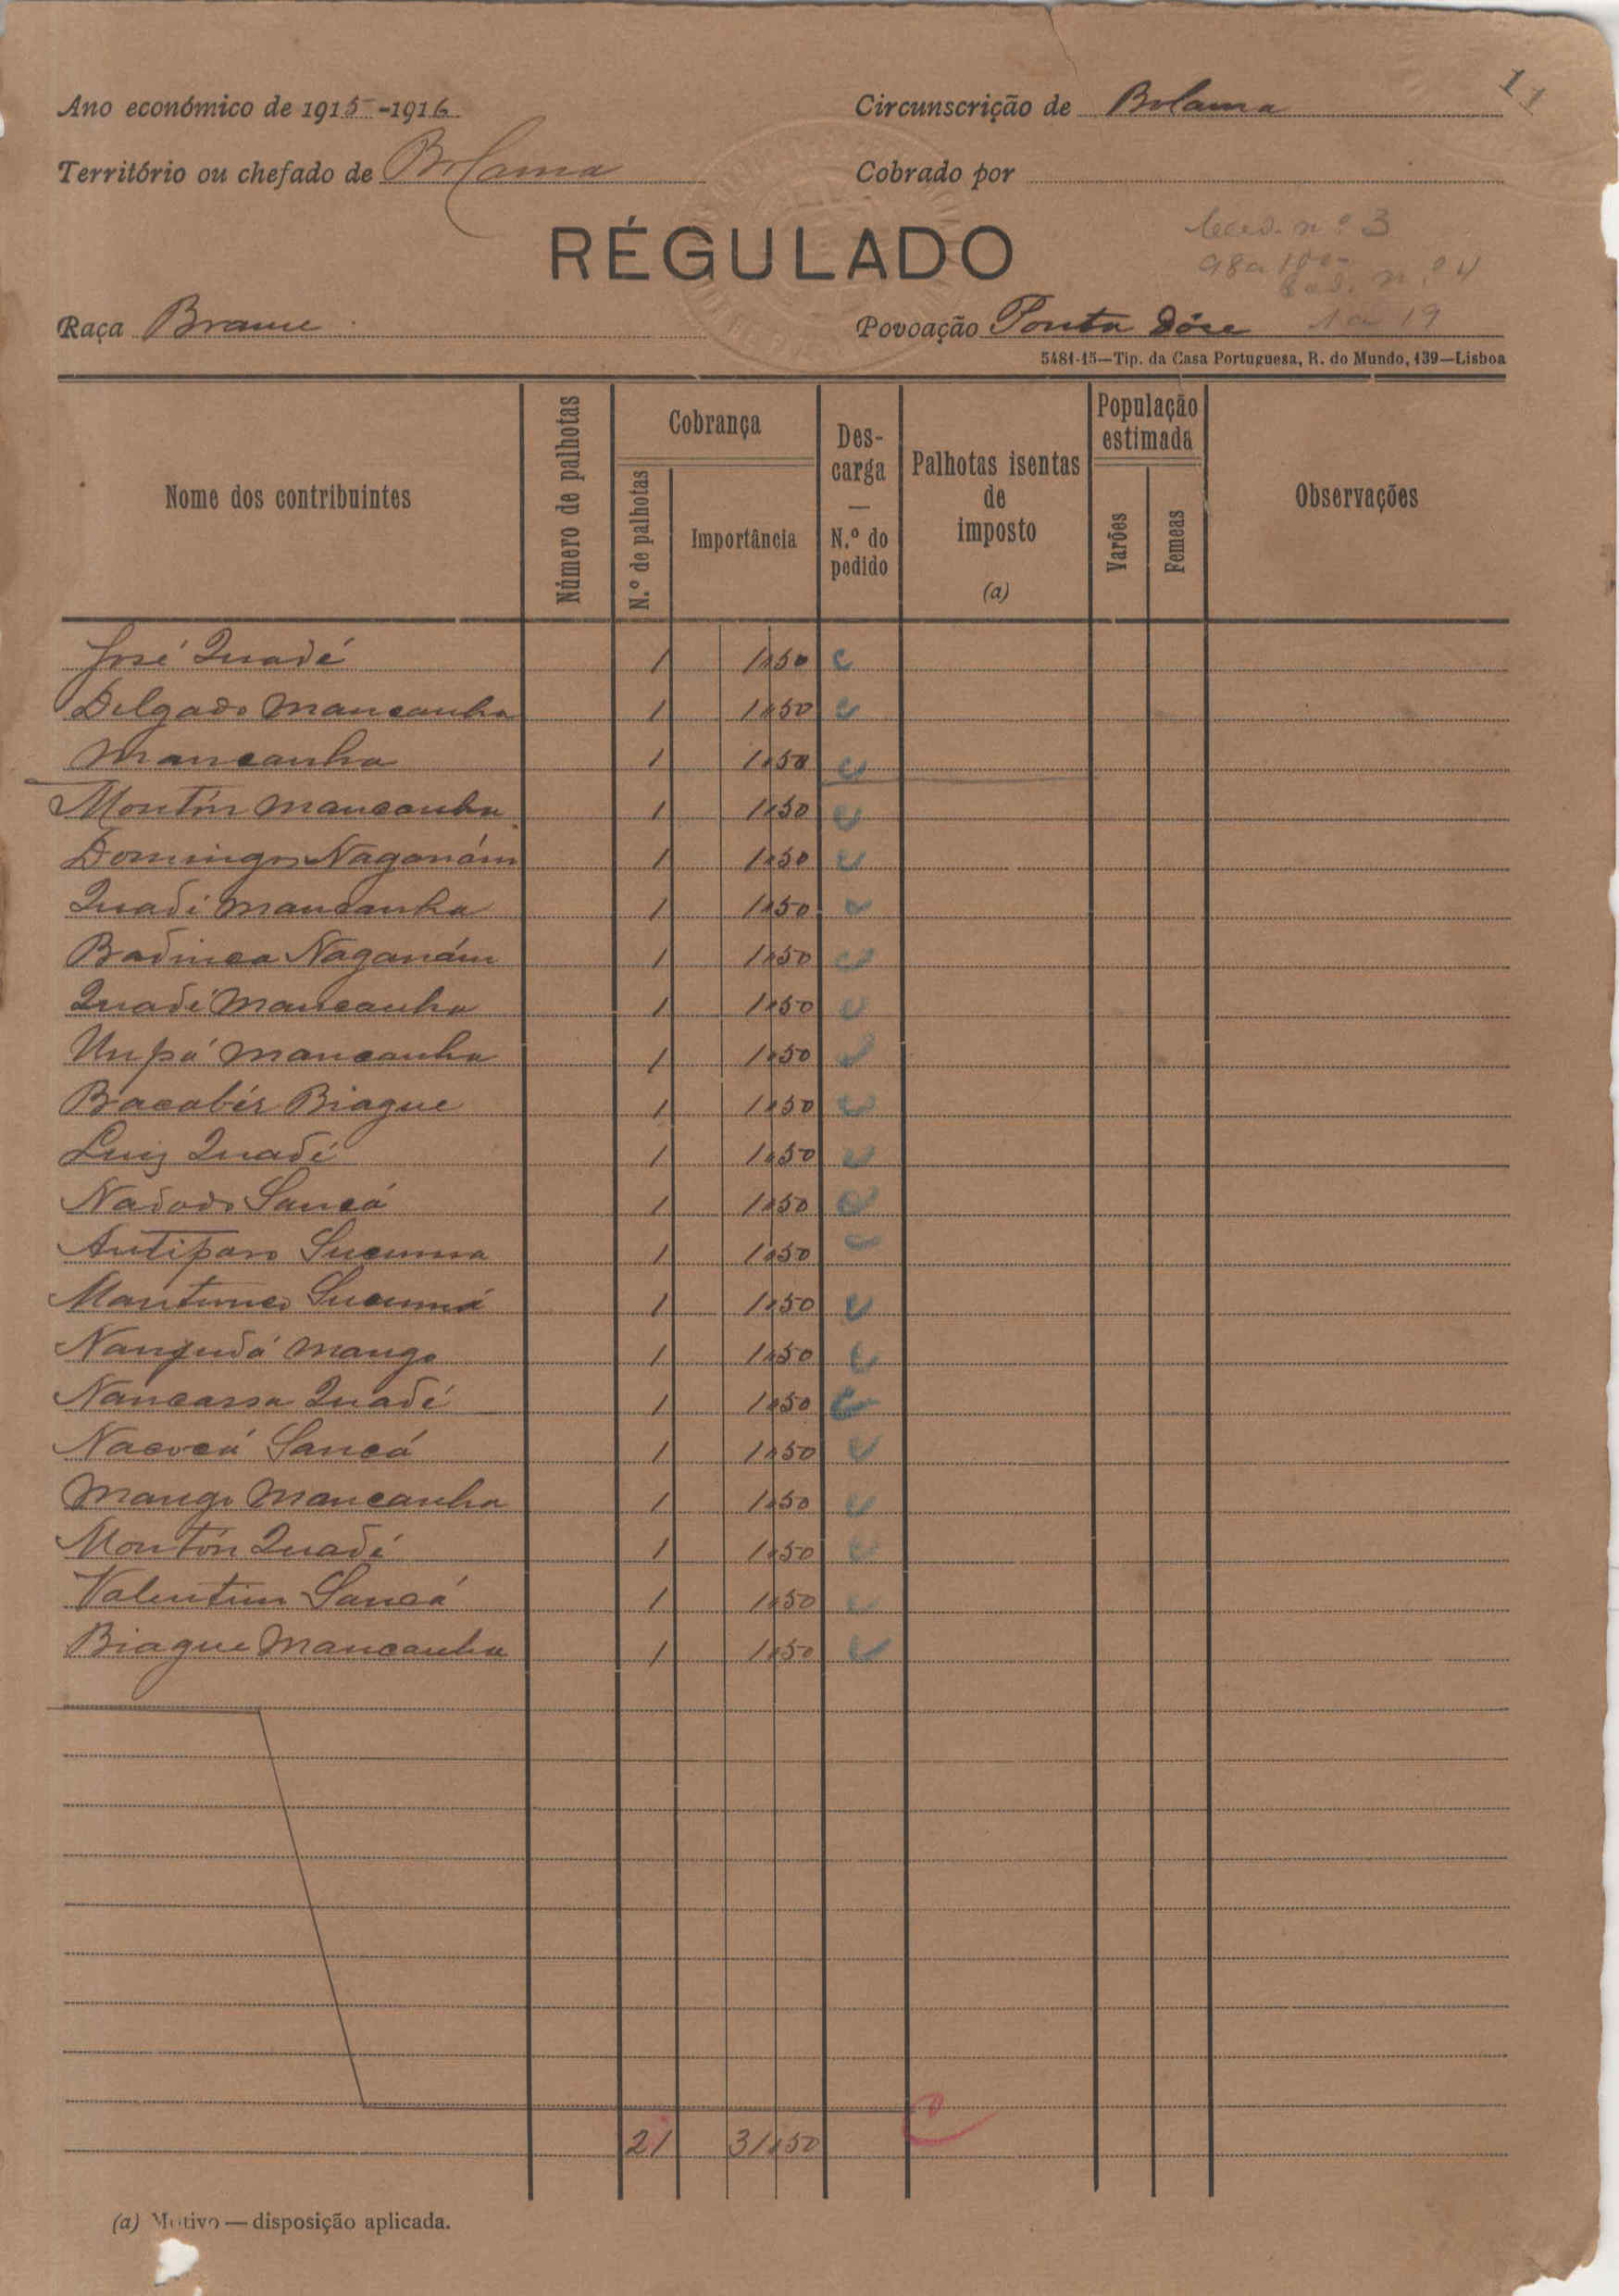 11
Ano económico de 1915-1916 Circunscrição de Bolama
Território ou chefado de Bolama Cobrado por
RÉGULADO
nº 3
n.º 4
Raça Brame Povoação Ponta 1 a 19
5481-15—Tip. da Casa Portuguesa, R. do Mundo, 139—Lisboa
Nome dos contribuintes Número de palhotas Cobrança N.º de palhotas Importância Descarga — N.º do pedido Palhotas isentas de imposto (a) População estimada Varões Femeas Observações
José Quadé 1 1$50 C
Delgado Mancanha 1 1$50 C
Mancanha 1 1$50 C
Montin Mancanha 1 1$50 C
Domingos Naganám 1 1$50 C
Quadé Mancanha 1 1$50 C
Badinca Naganám 1 1$50 C
Quadé Mancanha 1 1$50 C
Unpá Mancanha 1 1$50 C
Bacabér Biague 1 1$50 C
Luiz Quadé 1 1$50 C
Nadodo Sancá 1 1$50 C
Antiparo Sucuma 1 1$50 C
Sucumá 1 1$50 C
Mango 1 1$50 C
Nancassa Quadé 1 1$50 C
Nacocá Sancá 1 1$50 C
Mango Mancanha 1 1$50 C
Montón Quadé 1 1$50 C
Valentim Sancá 1 1$50 C
Biague Mancanha 1 1$50 C
21 31$50 C
(a) Motivo — disposição aplicada.